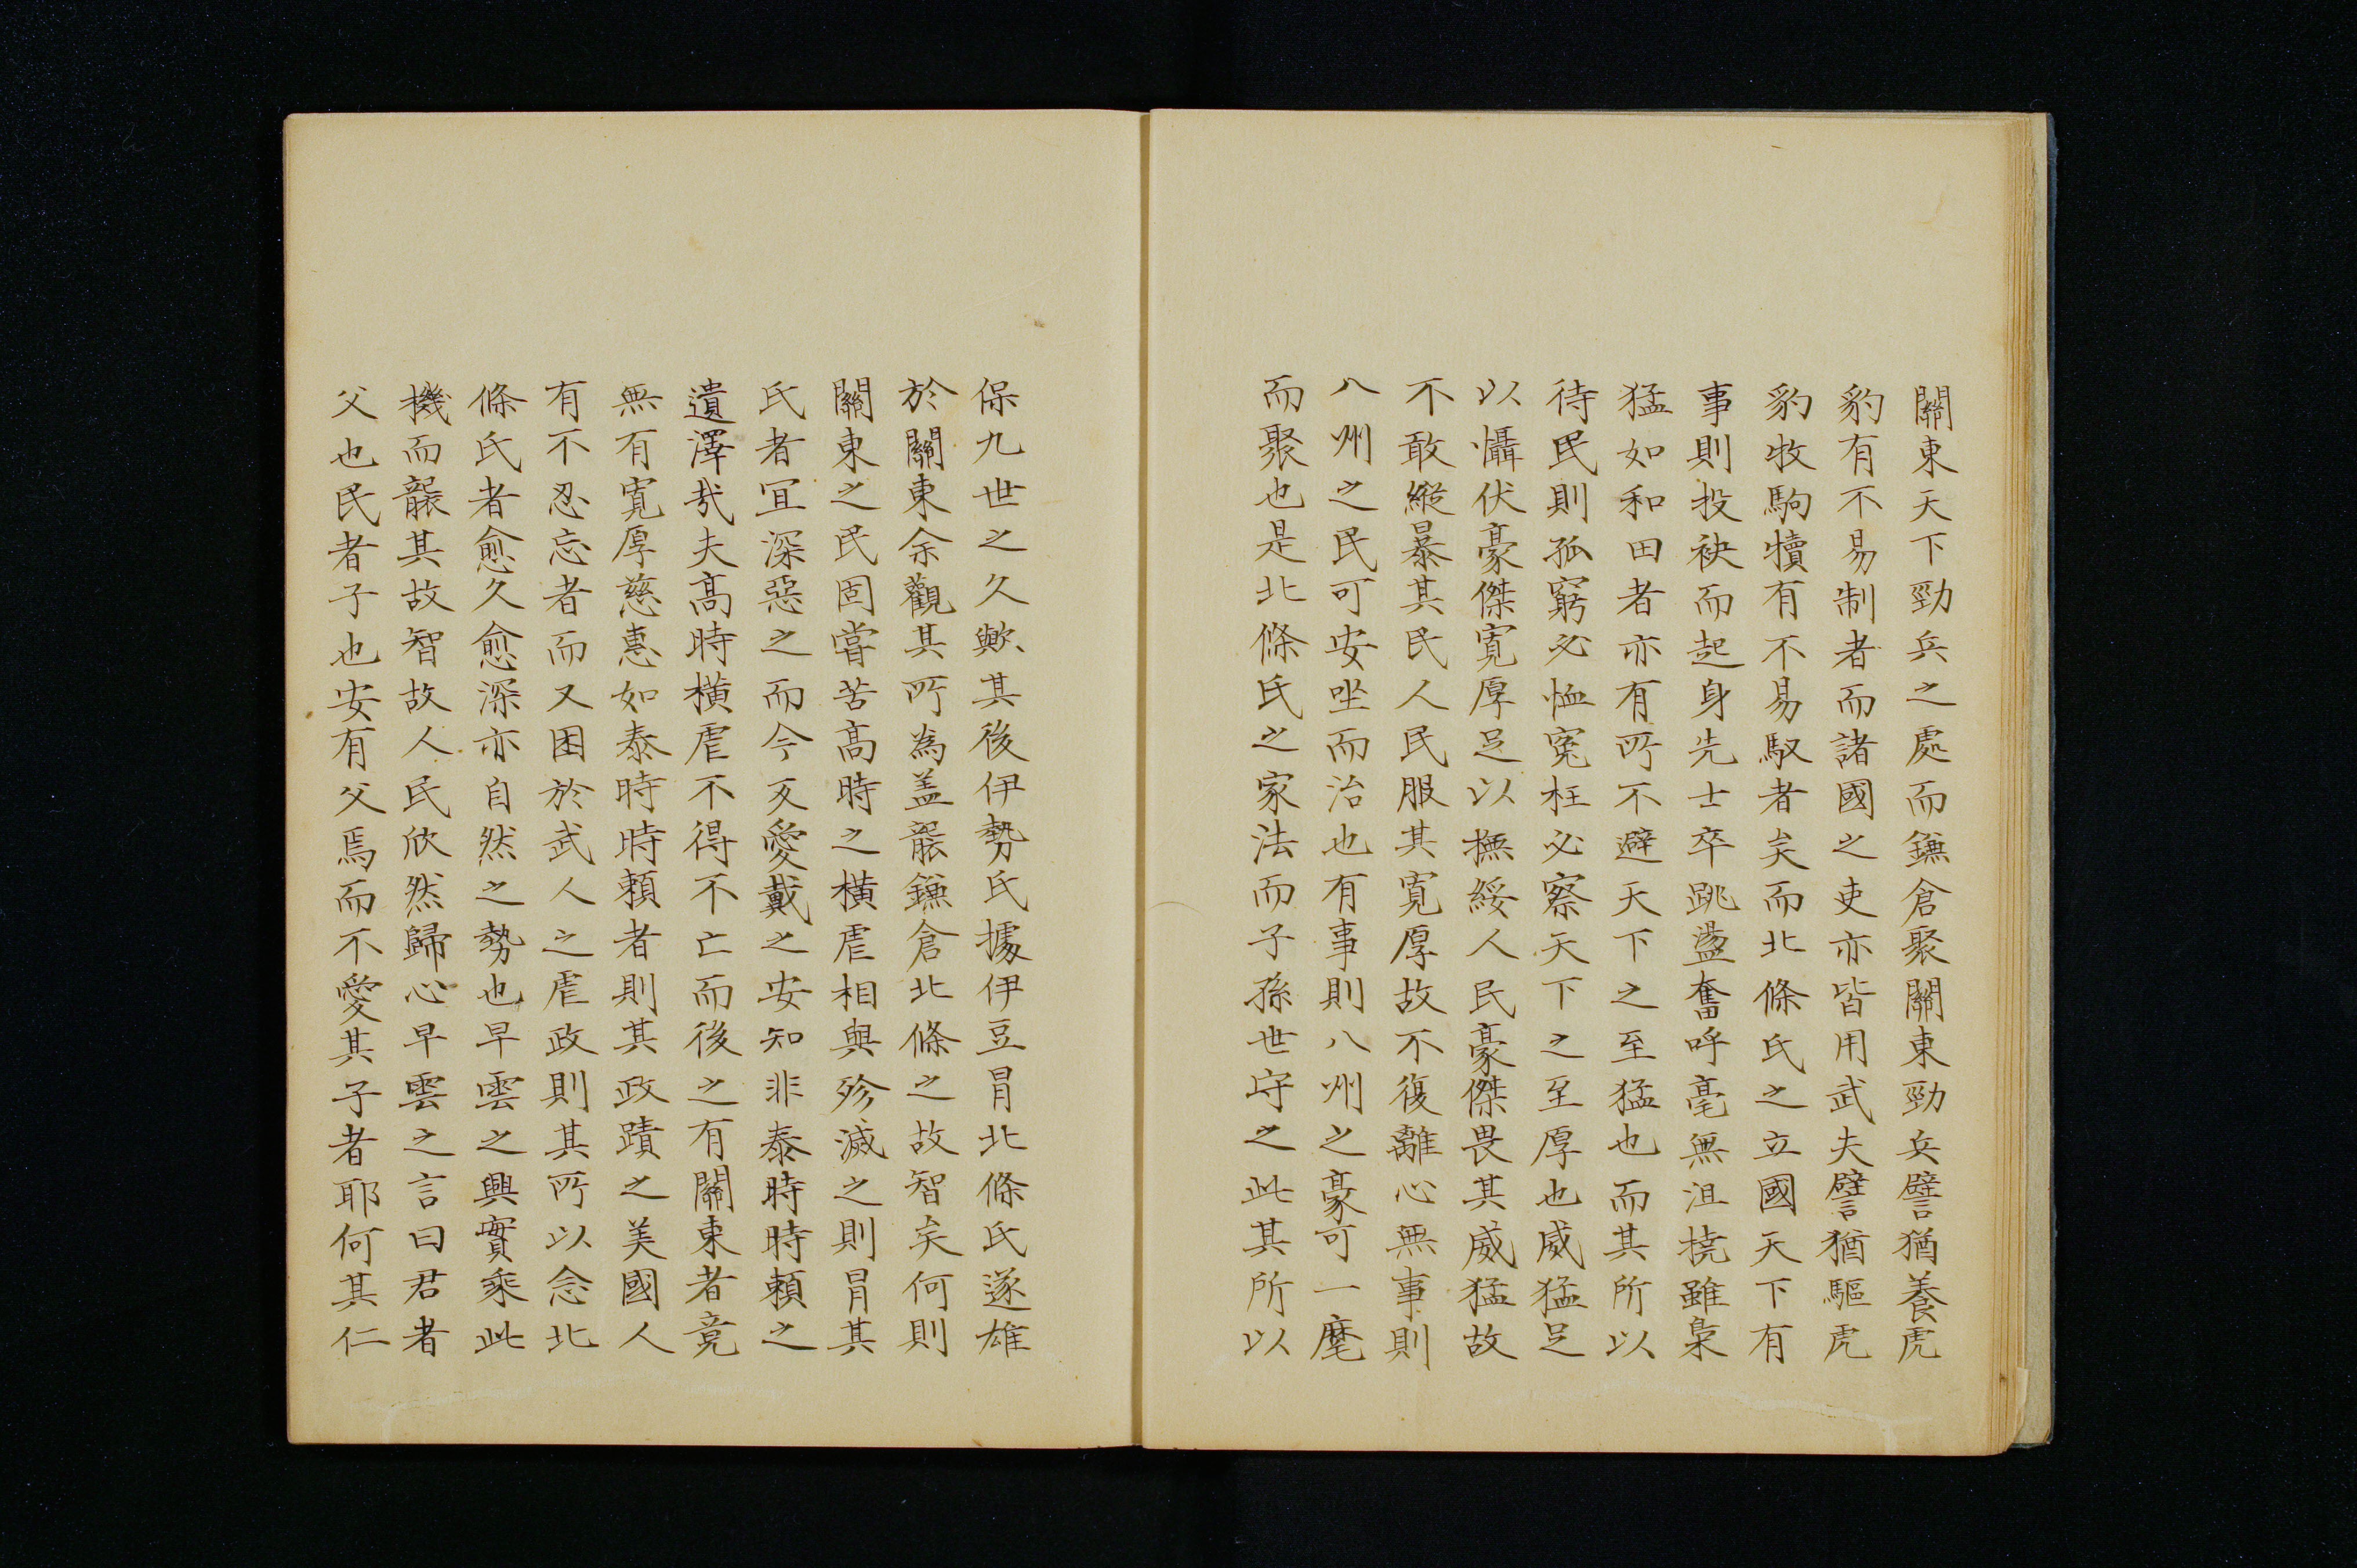 關東天下勁兵之處而鎌倉聚關東勁兵譬猶養虎
豹有不易制者而諸國之吏亦皆用武夫譬猶驅虎
豹牧駒犢有不易馭者矣而北條氏之立國天下有
事則投袂而起身先士卒跳盪奮呼毫無沮撓雖梟
猛如和田者亦有所不避天下之至猛也而其所以
待民則孤窮必恤寃枉必察天下之至厚也威猛足
以懾伏豪傑寬厚足以撫綏人民豪傑畏其威猛故
不敢縱暴其民人民服其寬厚故不復離心無事則
八州之民可安坐而治也有事則八州之豪可一麾
而聚也是北條氏之家法而子孫世守之此其所以
保九世之久歟其後伊勢氏據伊豆冒北條氏遂雄
於關東余觀其所為盖襲鎌倉北條之故智矣何則
關東之民固嘗苦高時之橫虐相與殄滅之則冒其
氏者宜深惡之而今反愛戴之安知非泰時時賴之
遺澤哉夫高時橫虐不得不亡而後之有關東者竟
無有寬厚慈惠如泰時時賴者則其政蹟之美國人
有不忍忘者而又困於武人之虐政則其所以念北
條氏者愈久愈深亦自然之勢也早雲之興實乘此
機而襲其故智故人民欣然歸心早雲之言曰君者
父也民者子也安有父焉而不愛其子者耶何其仁